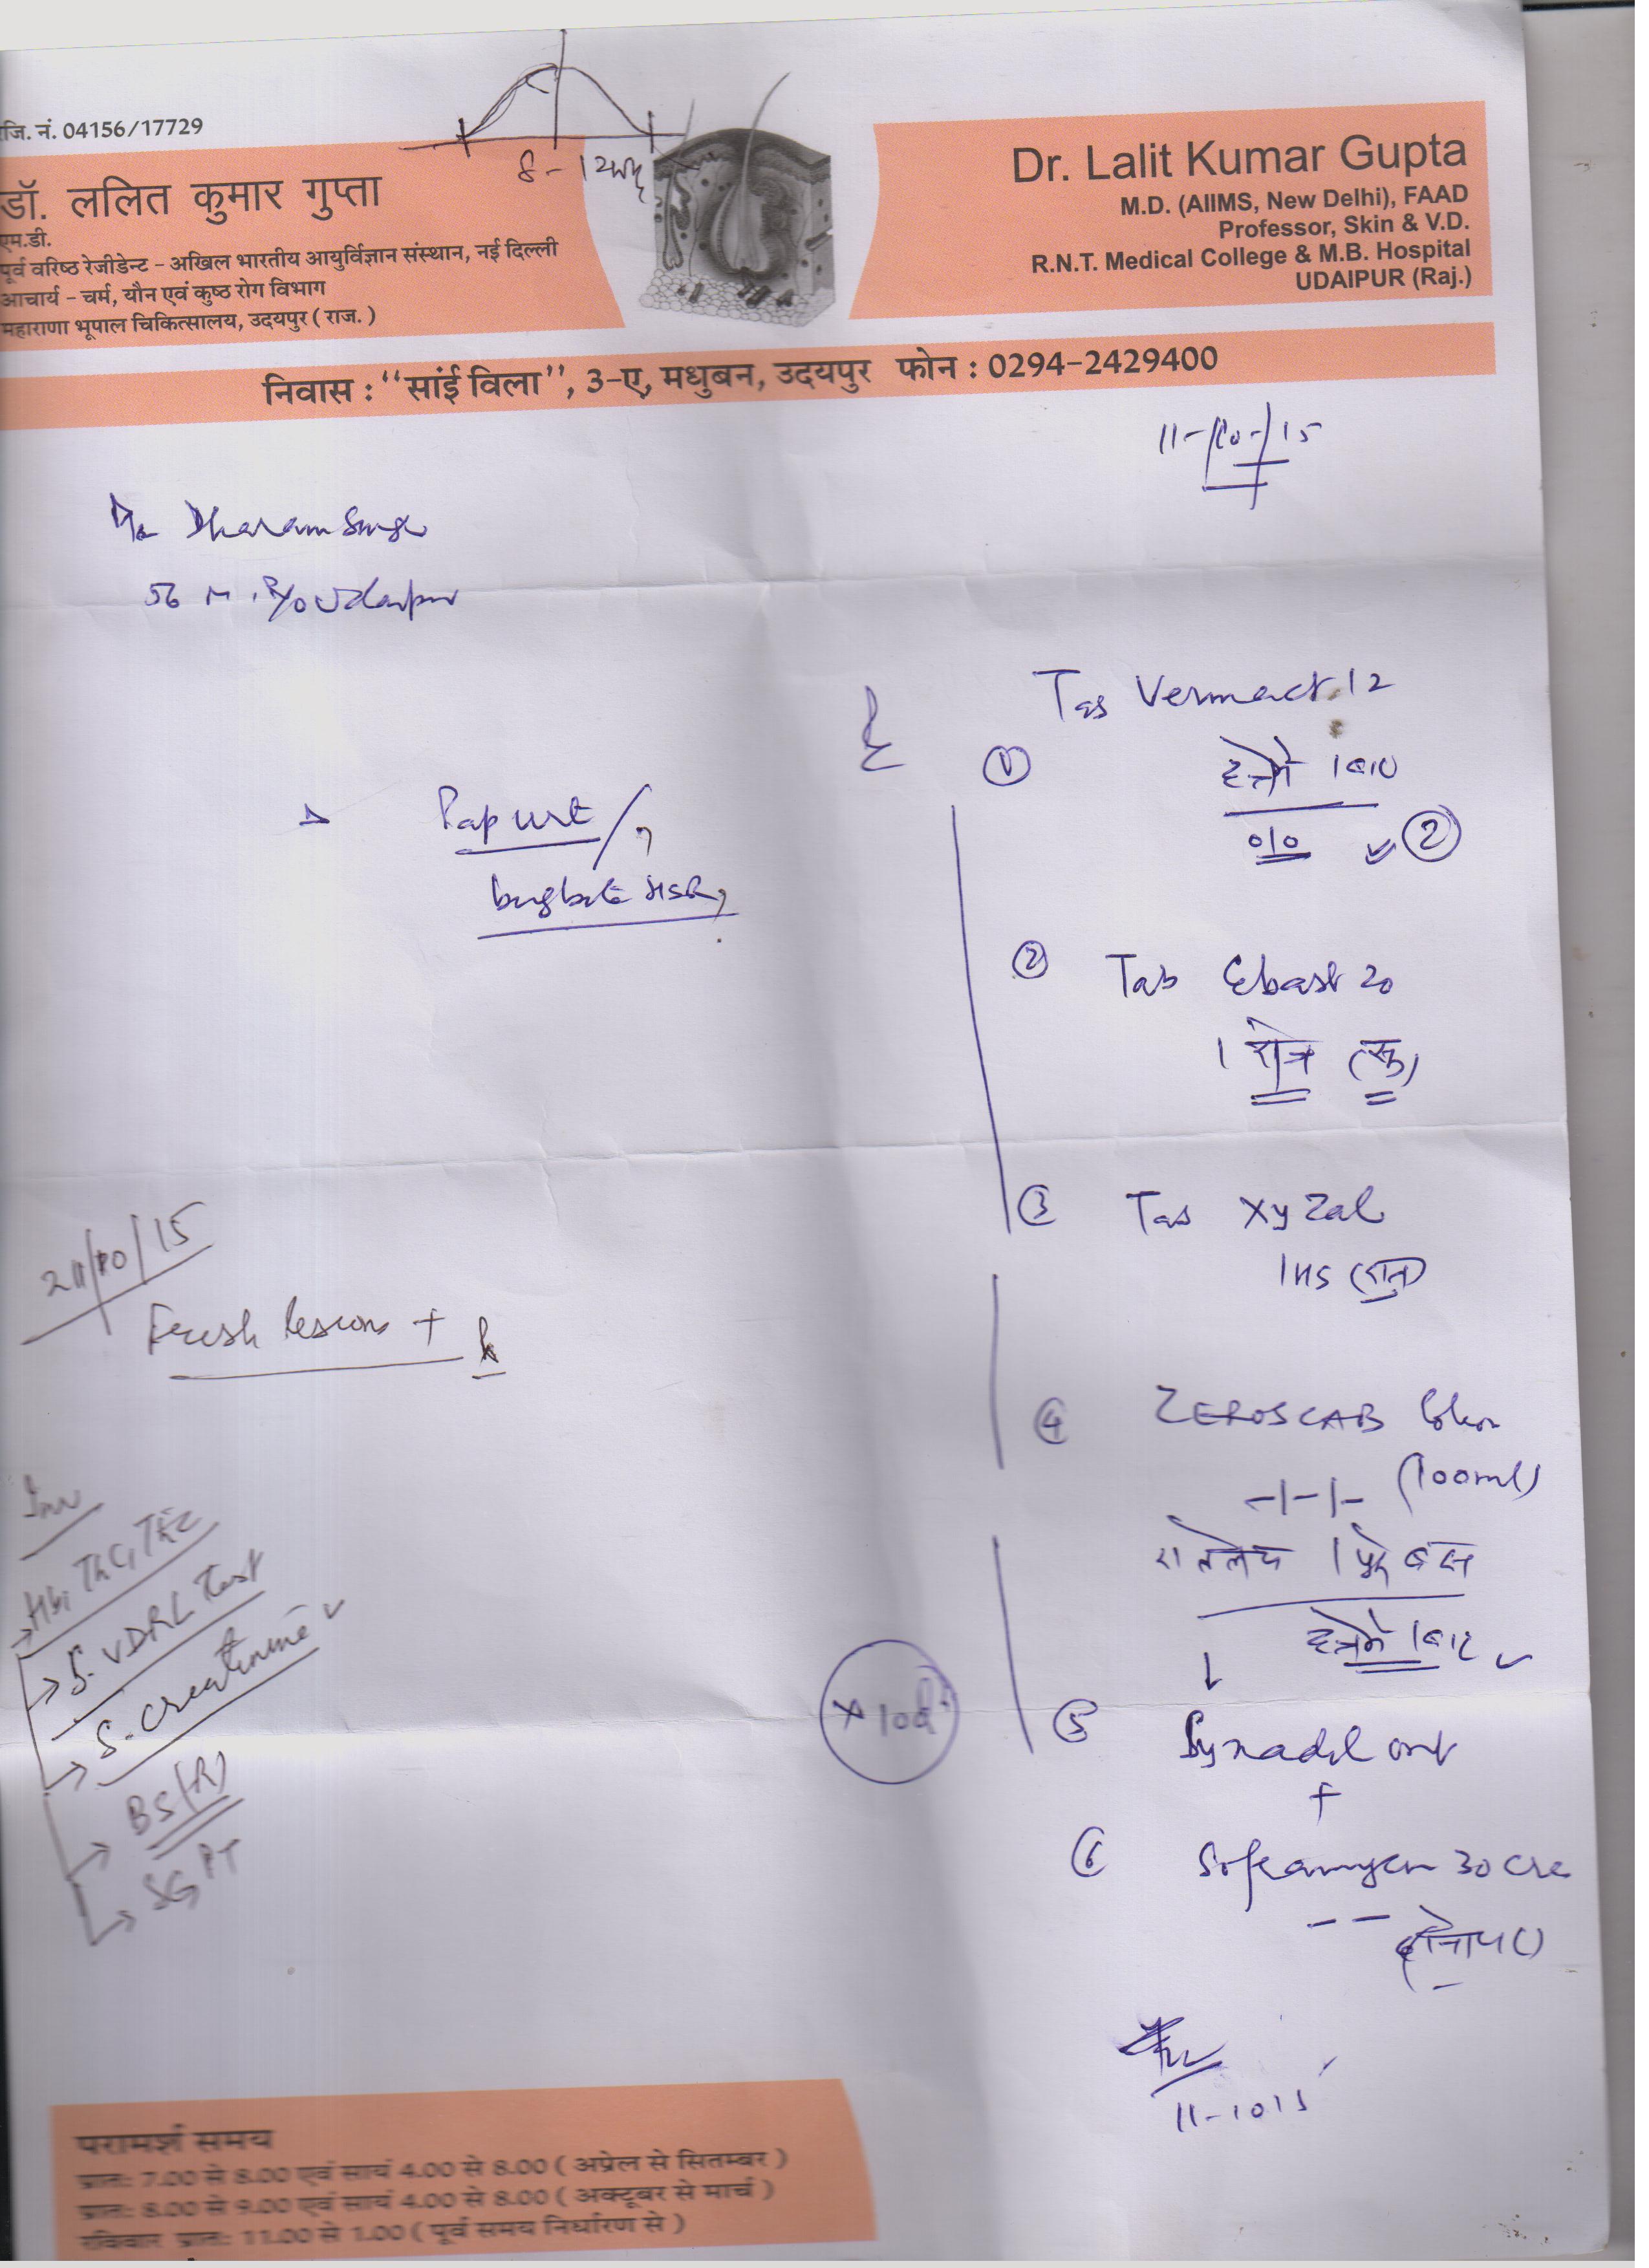 रजि. नं. 04156/17729
8-12wk
डॉ. ललित कुमार गुप्ता
एम.डी.
पूर्व वरिष्ठ रेजीडेन्ट - अखिल भारतीय आयुर्विज्ञान संस्थान, नई दिल्ली
आचार्य - चर्म, यौन एवं कुष्ठ रोग विभाग
महाराणा भूपाल चिकित्सालय, उदयपुर ( राज. )
Dr. Lalit Kumar Gupta
M.D. (AIIMS, New Delhi), FAAD
Professor, Skin & V.D.
R.N.T. Medical College & M.B. Hospital
UDAIPUR (Raj.)
निवास : "सांई विला", 3-ए, मधुबन, उदयपुर फोन : 0294-2429400
11-10-15
Dharam Singh
56 M. R/o Udaipur
Pap urt / ?
bugbite HSR ?
Tab Vermact 12
① हफ्ते में 1 बार
②
② Tab Ebast 20
1 रोज
③ Tab Xyzal
1 HS (रात)
④ ZEROSCAB lotion
(100ml)
-1-1-
हफ्ते में 1 बार
⑤ oint
+
⑥ Soframycin 30 cre
दानो पर
X 10d
11-10-15
21/10/15
Fresh lesions +
Inv
→ Hb, TLC,
→ S. VDRL Test
→ S. Creatinine
→ BS(R)
→ SGPT
परामर्श समय
प्रातः 7.00 से 8.00 एवं सायं 4.00 से 8.00 ( अप्रेल से सितम्बर )
प्रातः 8.00 से 9.00 एवं सायं 4.00 से 8.00 ( अक्टूबर से मार्च )
रविवार प्रातः 11.00 से 1.00 ( पूर्व समय निर्धारण से )